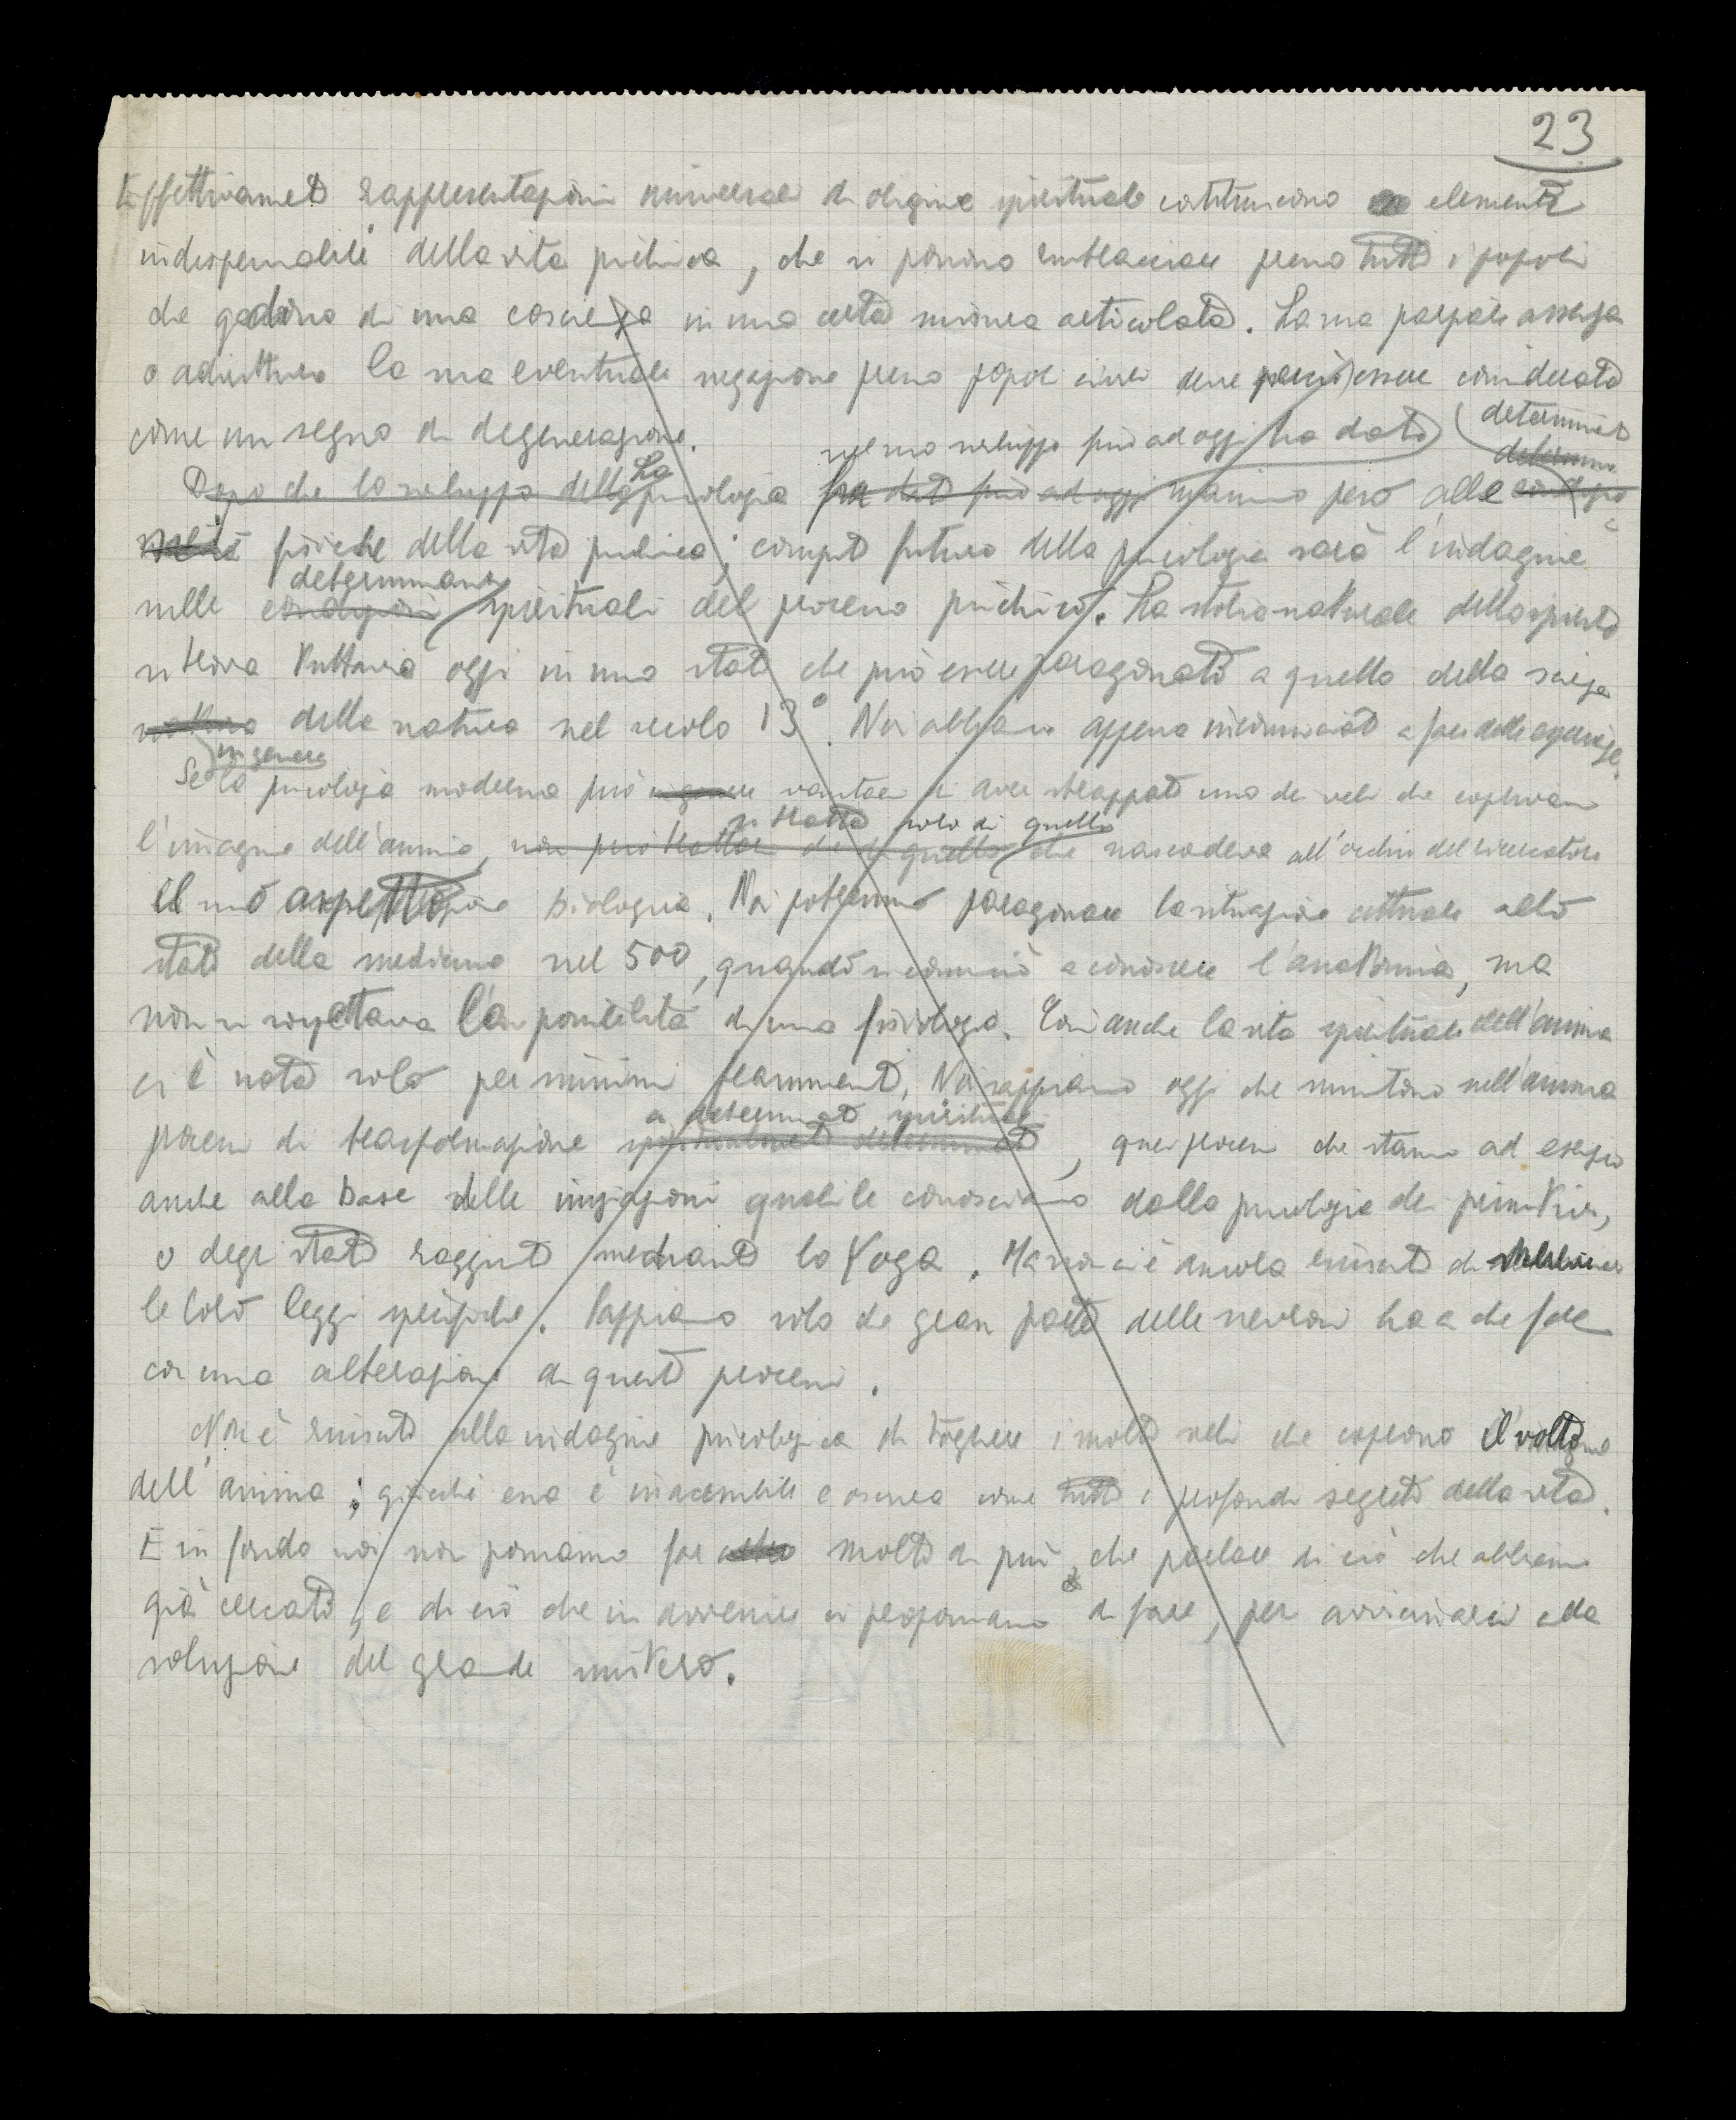 23
Effettivamente rappresentazioni universali di origine spirituale costituiscono elementi
indispensabili della vita psichica, che si possono rintracciare presso tutti i popoli
che godono di una coscienza in una certa misura articolata. La sua parziale assenza
o addirittura la sua eventuale negazione presso popoli civili deve perciò essere considerata
come un segno di degenerazione.
nel suo sviluppo fino ad oggi ha dato determinanti
Dopo che lo sviluppo della La psicologia ha dato fino ad oggi massimo peso alle condizioni
fisiche della vita psichica; compito futuro della psicologia sarà l'indagine
determinanti
sulle condizioni spirituali del processo psichico. La storia naturale dello spirito
si trova tuttavia oggi in uno stato che può essere paragonato a quello della scienza
natura della natura nel secolo 13°. Noi abbiamo appena incominciato a fare delle esperienze.
in genere
Se la psicologia moderna può in genere vantarsi di aver strappato uno dei veli che coprivano
si tratta solo di quello
l'imagine dell'anima, non può trattarsi che di quello che nascondeva all'occhio del ricercatore
il suo aspetto biologico. Noi potremmo paragonare la situazione attuale allo
stato della medicina nel 500, quando si cominciò a conoscere l'anatomia, ma
non si sospettava la possibilità di una fisiologia. Così anche la vita spirituale dell'anima
ci è nota solo per minimi frammenti. Noi sappiamo oggi che esistono nell'anima
determinati spirituali
processi di trasformazione spiritualmente determinati, quei processi che stanno ad esempio
anche alla base delle iniziazioni quali le conosciamo dalla psicologia dei primitivi,
o degli stati raggiunti mediante lo Yoga. Ma non ci è ancora riuscito di stabilire
le loro leggi specifiche. Sappiamo solo che gran parte delle nevrosi ha a che fare
con una alterazione di questi processi.
Non è riuscito alla indagine psicologica di togliere i molti veli che coprono il volto
dell'anima; giacché essa è inaccessibile e oscura come tutti i profondi segreti della vita.
E in fondo noi non possiamo fare altro molto di più, che parlare di ciò che abbiamo
già cercato, e di ciò che in avvenire ci proponiamo di fare, per avvicinarci alla
soluzione del grande mistero.